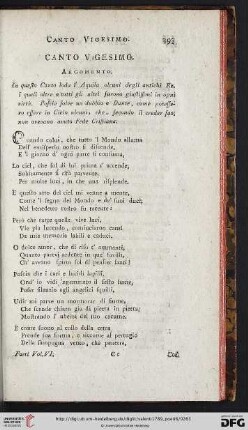 CANTO VIGESIMO.
CANTO VIGESIMO.
ARGOMENTO.
In questo Canto loda l' Aquila alcuni degli antichi Re,
i quali oltre a tutti gli altri furono giustissimi in ogni
virtù. Poscia solve un dubbio a Dante, come potesse-
ro essere in Cielo alcuni, che, secondo il creder suo,
non avevano avuta Fede Cristiana.
Quando colui, che tutto 'l Mondo alluma
Dell' emisperio nostro sì discende,
E 'l giorno d' ogni parte si consuma,
Lo ciel, che sol di lui prima s' accende,
Subitamente si rifà parvente
Per molte luci, in che una risplende.
E questo atto del ciel mi venne a mente,
Come 'l segno del Mondo e de' suoi duci,
Nel benedetto rostro fu tacente:
Però che tutte quelle vive luci,
Vie più lucendo, cominciaron canti
Da mia memoria labili e caduci.
O dolce amor, che di riso t' ammanti,
Quanto parevi ardente in que' favilli,
Ch' aveano spirto sol di pensier santi!
Poscia che i cari e lucidi lapilli,
Ond' io vidi ingemmato il sesto lume,
Poser silenzio agli angelici squilli,
Udir mi parve un mormorar di fiume,
Che scende chiaro giù di pietra in pietra,
Mostrando l' ubertà del suo cacume.
E come suono al collo della cetra
Prende sua forma, e siccome al pertugio
Della sampogna vento, che penetra,
Parad. Vol. VI.
C c